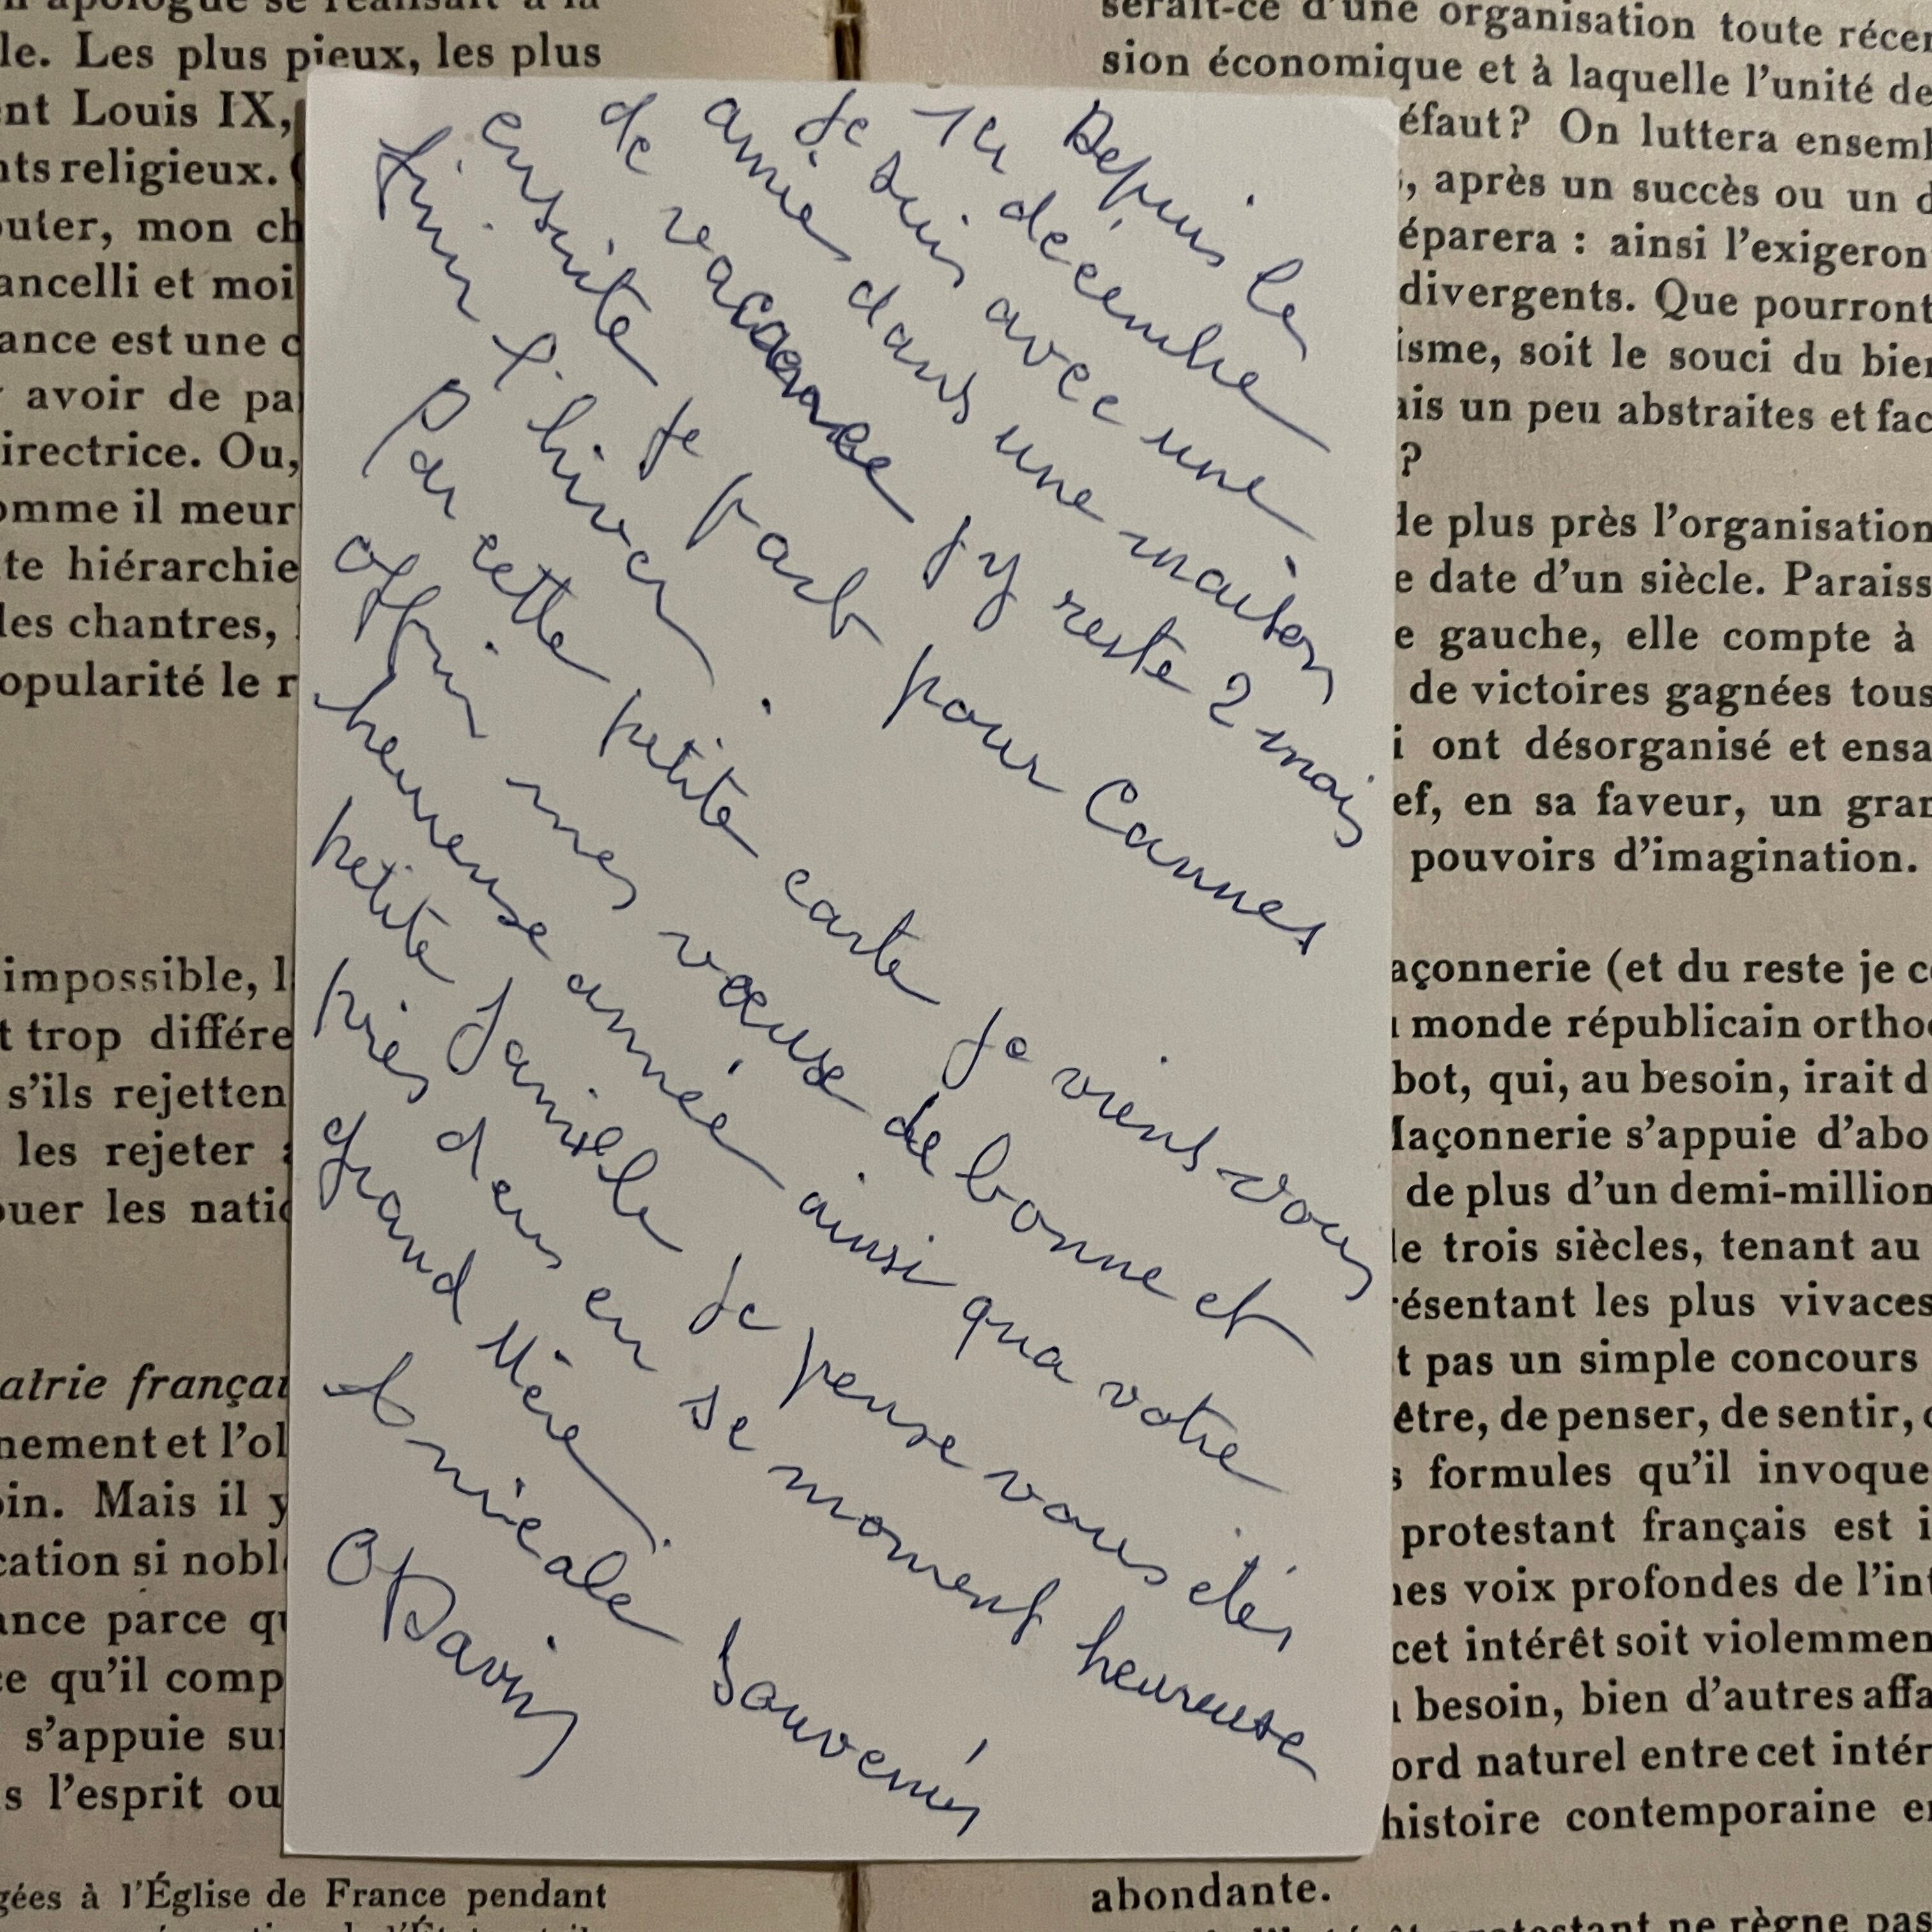 n apologue se réalisait à la
le. Les plus pieux, les plus
ent Louis IX,
nts religieux.
outer, mon ch
ancelli et moi
ance est une c
avoir de pa
irectrice. Ou,
omme il meur
te hiérarchie
les chantres,
opularité le r
impossible, l
t trop différe
s'ils rejetten
les rejeter
ouer les natio
atrie françai
nement et l'ol
oin. Mais il y
cation si noble
ance parce qu
ce qu'il comp
s'appuie sur
s l'esprit ou
gées à l'Église de France pendant
Depuis le
1er décembre
Je suis avec une
amie dans une maison
de vacance j'y reste 2 mois
ensuite je part pour Cannes
finir l'hiver.
Par cette petite carte je viens vous
offrir mes vœux de bonne et
heureuse année ainsi qua votre
petite Danielle je pense vous etes
près deux en se moment heureuse
grand Mère
Amicale Souvenir
O Davin
serait-ce d'une organisation toute récen
sion économique et à laquelle l'unité de
éfaut? On luttera ensemb
s, après un succès ou un d
éparera : ainsi l'exigeron
divergents. Que pourront
isme, soit le souci du bien
ais un peu abstraites et fac
?
de plus près l'organisation
e date d'un siècle. Paraiss
e gauche, elle compte à
de victoires gagnées tous
i ont désorganisé et ensa
ef, en sa faveur, un gran
pouvoirs d'imagination.
açonnerie (et du reste je c
monde républicain orthod
bot, qui, au besoin, irait d
Maçonnerie s'appuie d'abo
de plus d'un demi-million
de trois siècles, tenant au
résentant les plus vivaces
t pas un simple concours
être, de penser, de sentir, d
s formules qu'il invoque
protestant français est i
nes voix profondes de l'int
cet intérêt soit violemmen
besoin, bien d'autres affa
ord naturel entre cet intér
histoire contemporaine e
abondante.
protestant ne règne pas